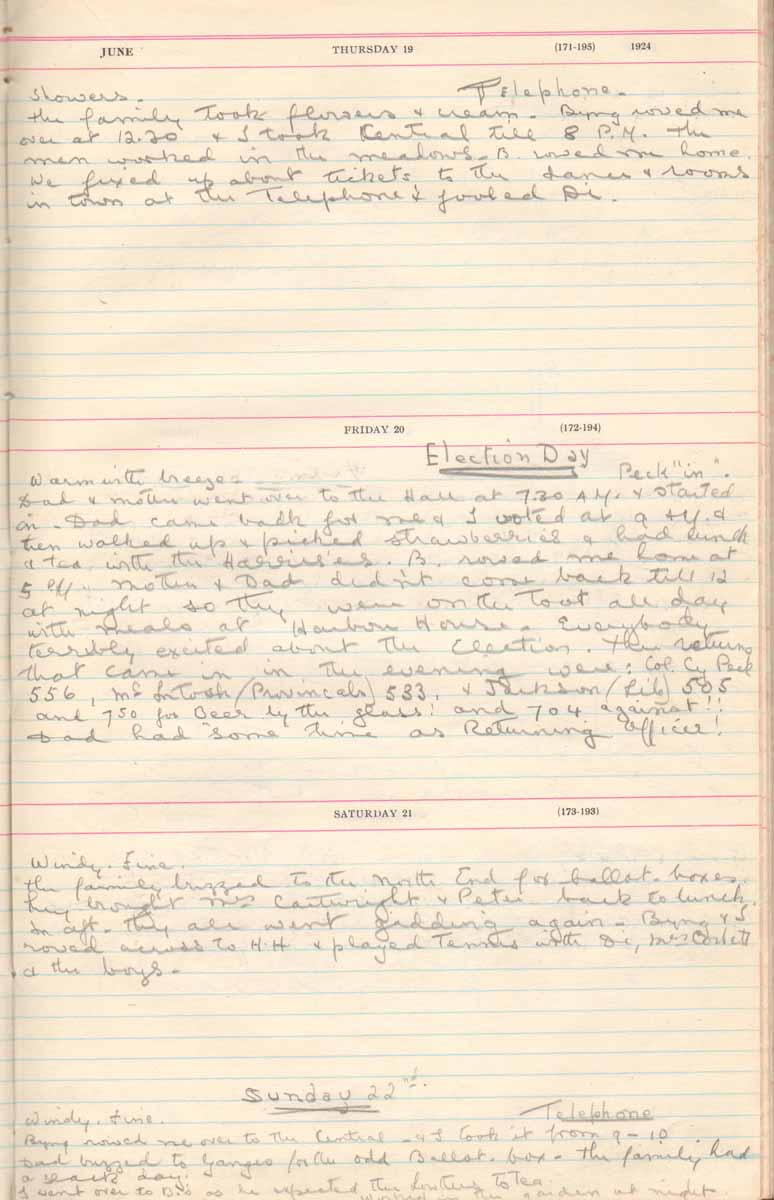 JUNE THURSDAY 19 (171-195) 1924
Showers. Telephone.
The family took flowers & cream. Byng rowed me
over at 12.20 & I took Central till 8 P.M. The
men worked in the meadows. B. rowed me home.
We fixed up about tickets to the dance & rooms
in town at the Telephone & fooled Di.
FRIDAY 20 (172-194)
Election Day
Warm with breeze Peck "in".
Dad & mother went over to the Hall at 7.30 A.M. & started
in. Dad came back for me & I voted at 9 A.M. &
then walked up & picked strawberries & had lunch
& tea with the B. rowed me home at
5 Mother & Dad didn't come back till 12
at night so they were on the toot all day
with meals at Harbour House. Everybody
terribly excited about the Election. The returns
that came in in the evening were: Col. Cy Peck
556, McIntosh (Provincials) 533, & Jackson (Lib) 505
and 750 for Beer by the glass! and 704 against!!
Dad had "some" time as Returning Officer!
SATURDAY 21 (173-193)
Windy. Fine.
The family buzzed to the North End for ballot boxes.
They brought Mrs Cartwright & Peter back to lunch.
In aft. they all went gadding again. Byng & I
rowed across to H.H & played Tennis with Di, Mrs
& the boys.
Sunday 22nd.
Windy. Fine. Telephone
Byng rowed me over to the Central & I took it from 9-10
Dad buzzed to Ganges for the odd Ballot box. The family had
a slack day.
I went over to B's as he expected the to Tea.
worked in the garden at night